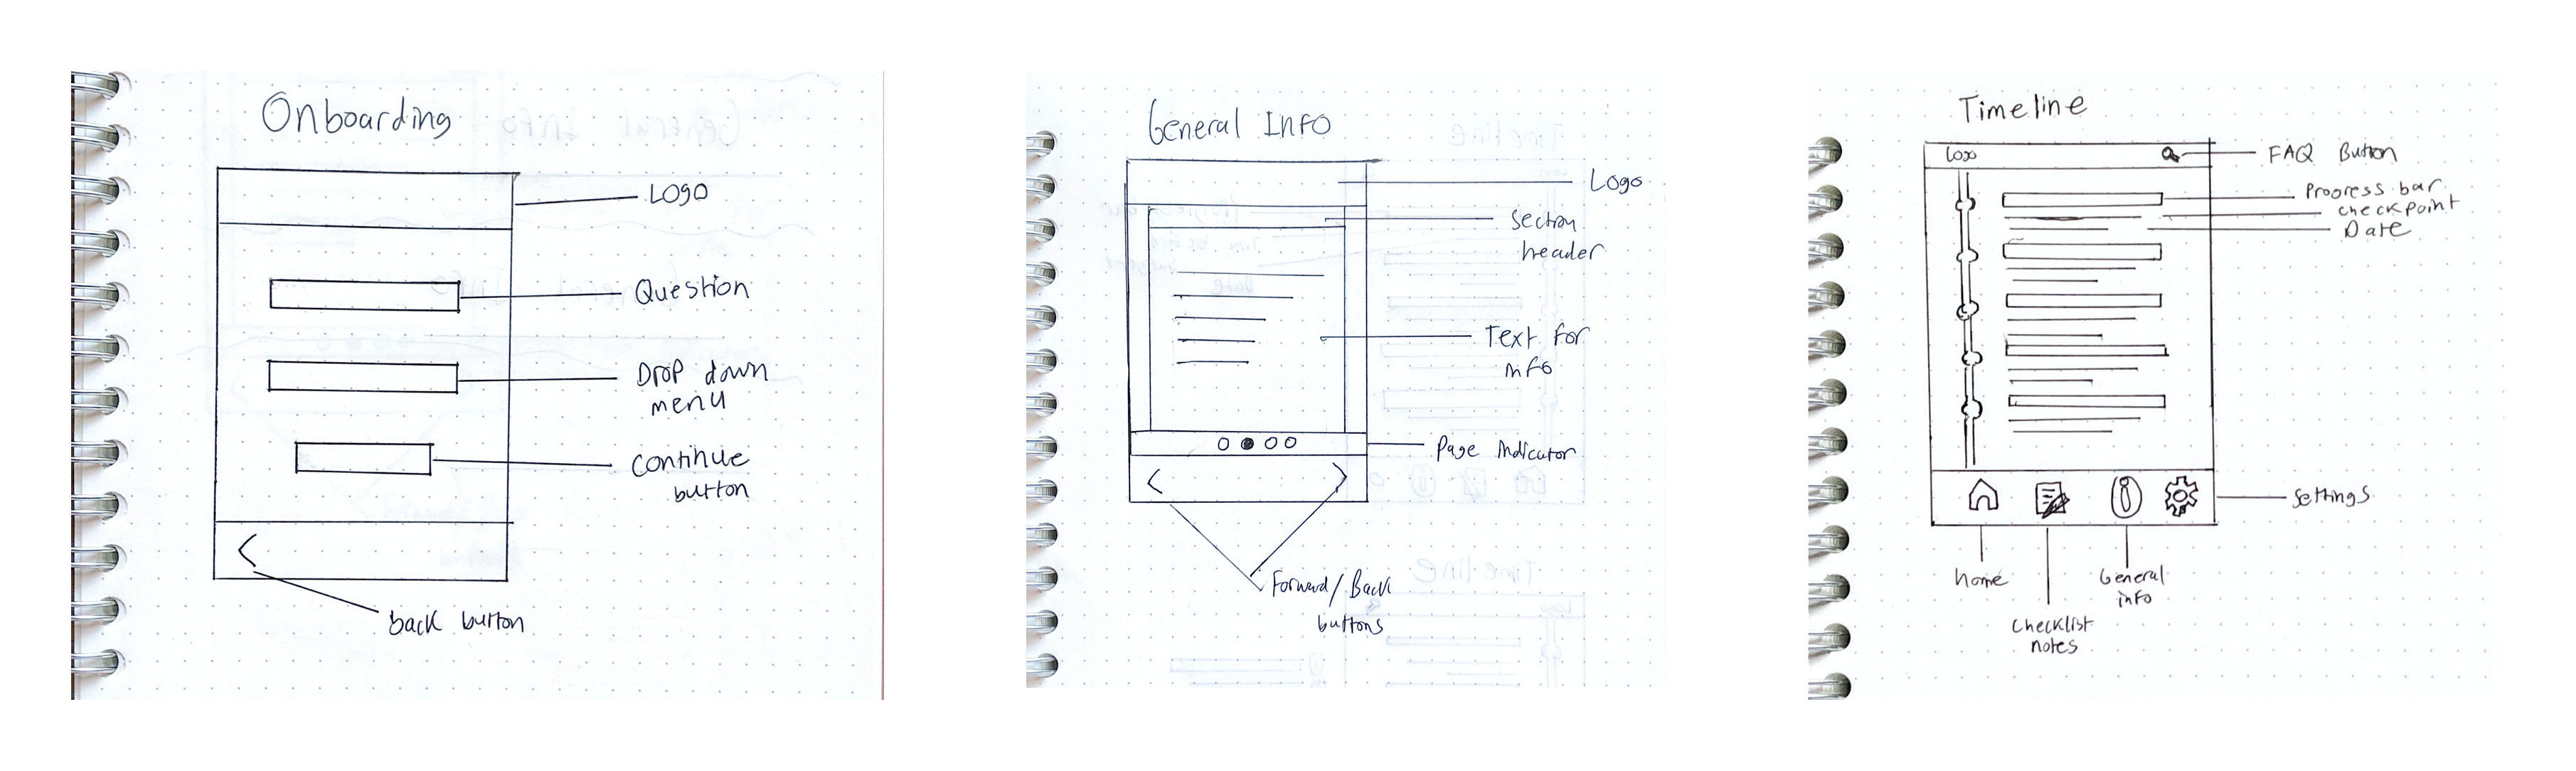 Onboarding
Logo
Question
Drop down
menu
Continue
button
back button
General Info
Logo
Section
header
Text for
info
Page Indicator
Forward/Back
buttons
Timeline
Logo
FAQ Button
Progress bar
checkpoint
Date
Settings
home
General
info
Checklist
notes